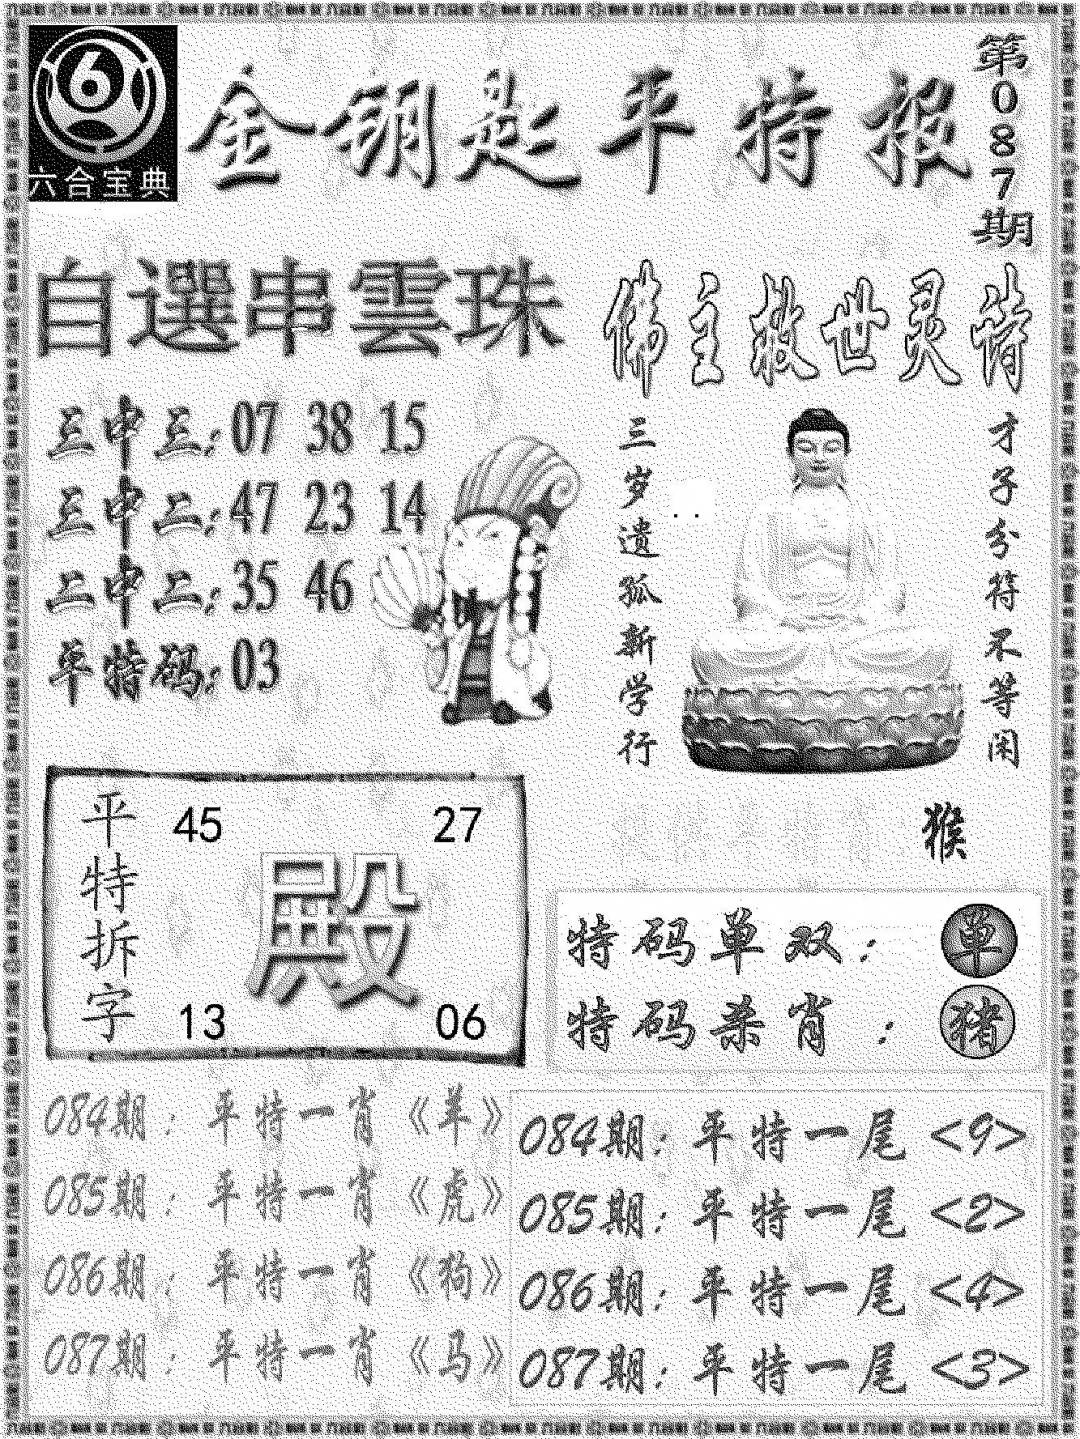 六合宝典
金钥匙平特报
第087期
自選串雲珠
三中三:07 38 15
三中二:47 23 14
二中二:35 46
平特码:03
佛主救世灵诗
三岁遗孤新学行
才子分符不等闲
猴
平特拆字
45 27
殿
13 06
特码单双:单
特码杀肖:猪
084期:平特一肖《羊》
085期:平特一肖《虎》
086期:平特一肖《狗》
087期:平特一肖《马》
084期:平特一尾<9>
085期:平特一尾<2>
086期:平特一尾<4>
087期:平特一尾<3>